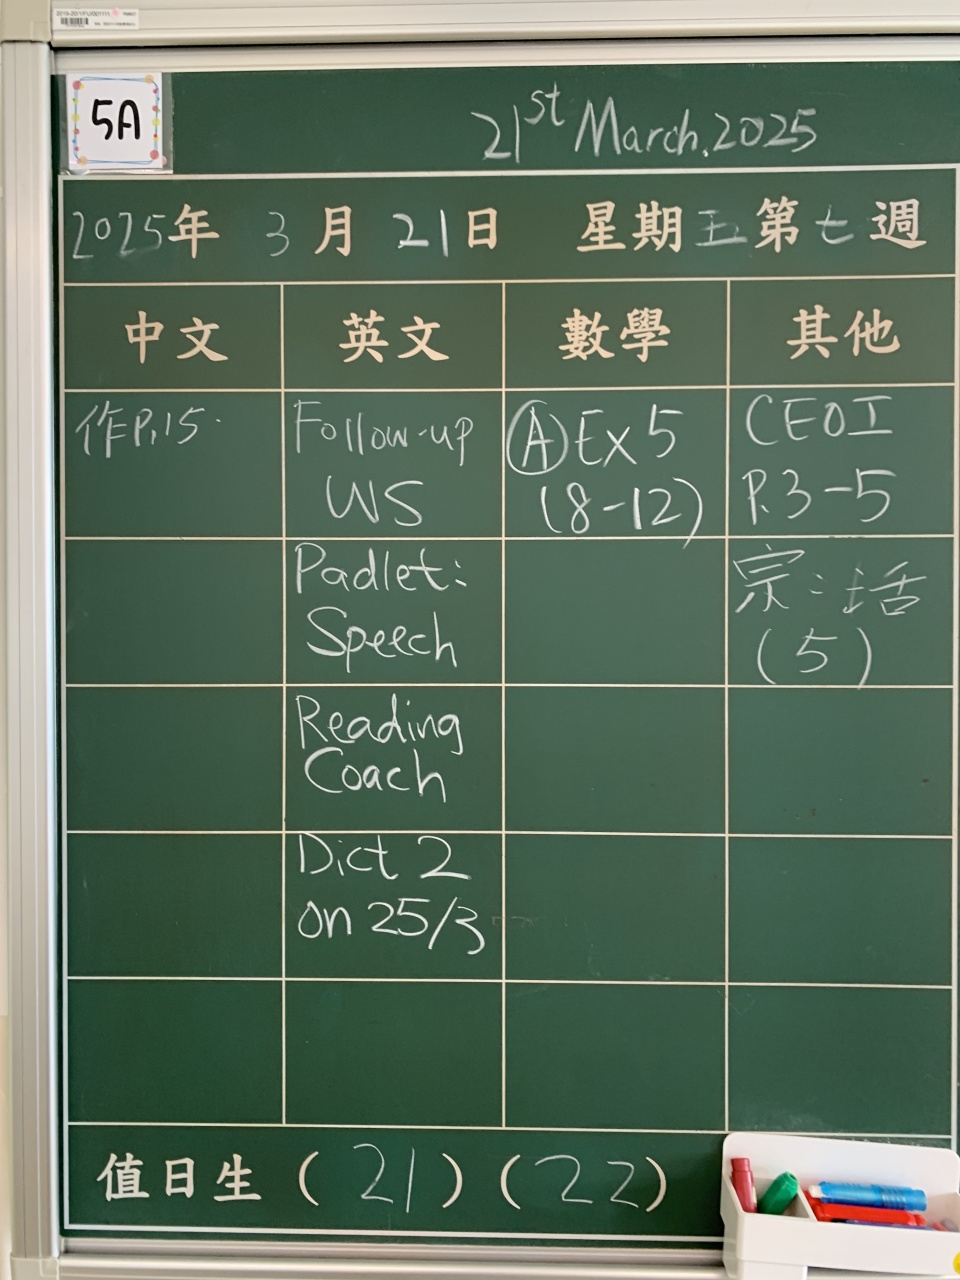 5A
21st March, 2025
2025年 3月 21日 星期五第七週
中文 英文 數學 其他
作P.15.
Follow-up
WS
Ⓐ Ex 5
(8-12)
CEOI
P.3-5
Padlet:
Speech
宗:活
(5)
Reading
Coach
Dict 2
on 25/3
值日生 (21) (22)